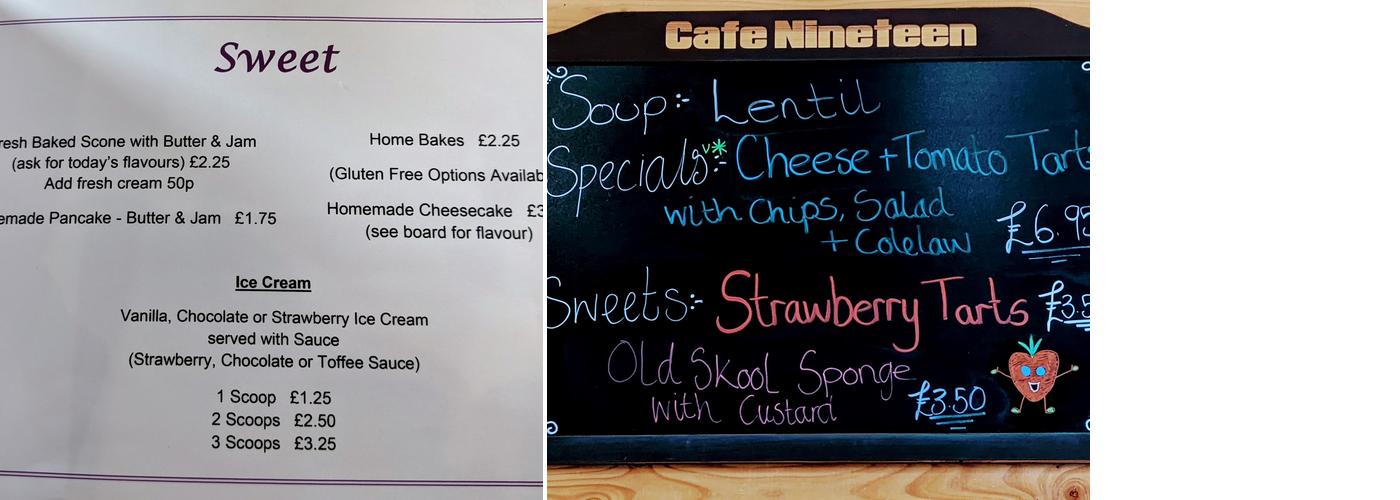 Sweet
resh Baked Scone with Butter & Jam
(ask for today's flavours) £2.25
Add fresh cream 50p
emade Pancake - Butter & Jam £1.75
Home Bakes £2.25
(Gluten Free Options Availab
Homemade Cheesecake £3
(see board for flavour)
Ice Cream
Vanilla, Chocolate or Strawberry Ice Cream
served with Sauce
(Strawberry, Chocolate or Toffee Sauce)
1 Scoop £1.25
2 Scoops £2.50
3 Scoops £3.25
Cafe Nineteen
Soup:- Lentil
Specials:- v* Cheese + Tomato Tarts
with Chips, Salad
+ Colelaw £6.95
Sweets:- Strawberry Tarts £3.5
Old Skool Sponge
with Custard £3.50